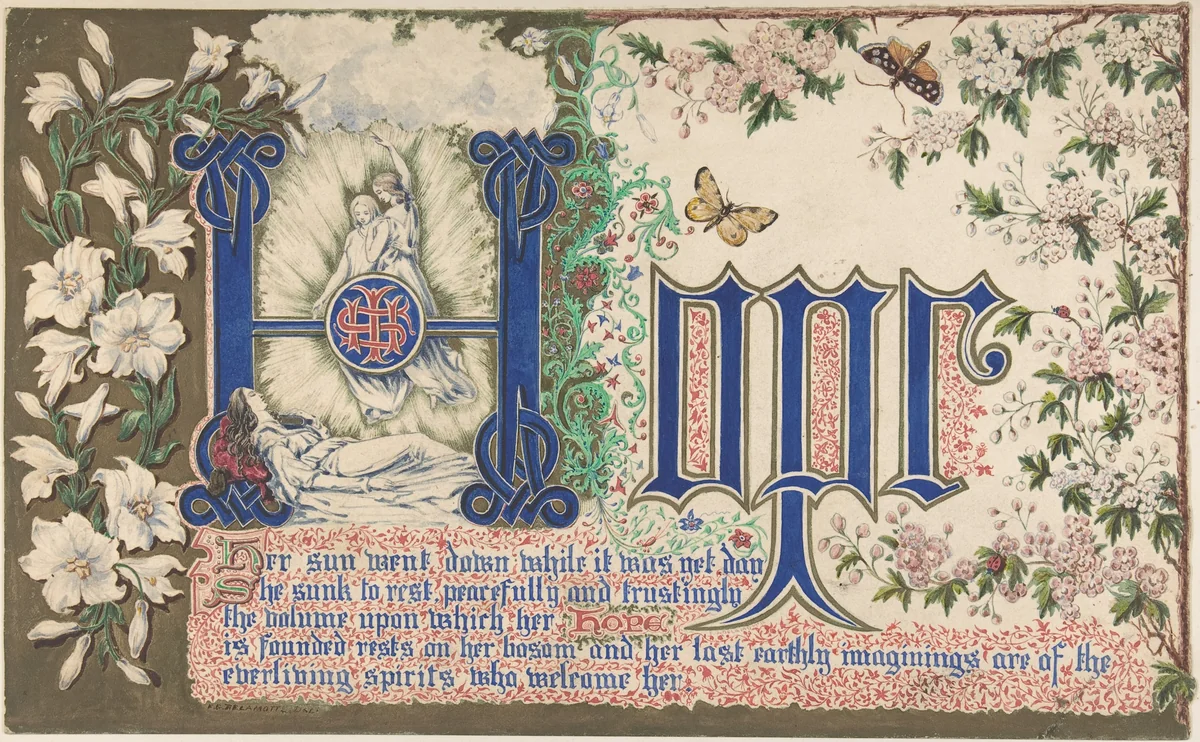 Hope
Her sun went down while it was yet day
She sunk to rest, peacefully and trustingly
the volume upon which her Hope
is founded rests on her bosom and her last earthly imaginings are of the
everliving spirits who welcome her.